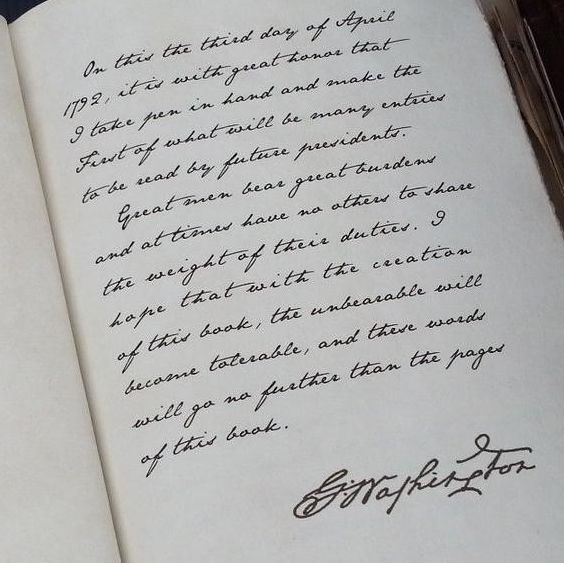 On this the third day of April
1792, it is with great honor that
I take pen in hand and make the
First of what will be many entries
to be read by future presidents.
Great men bear great burdens
and at times have no others to share
the weight of their duties. I
hope that with the creation
of this book, the unbearable will
become tolerable, and these words
will go no further than the pages
of this book.
G. Washington